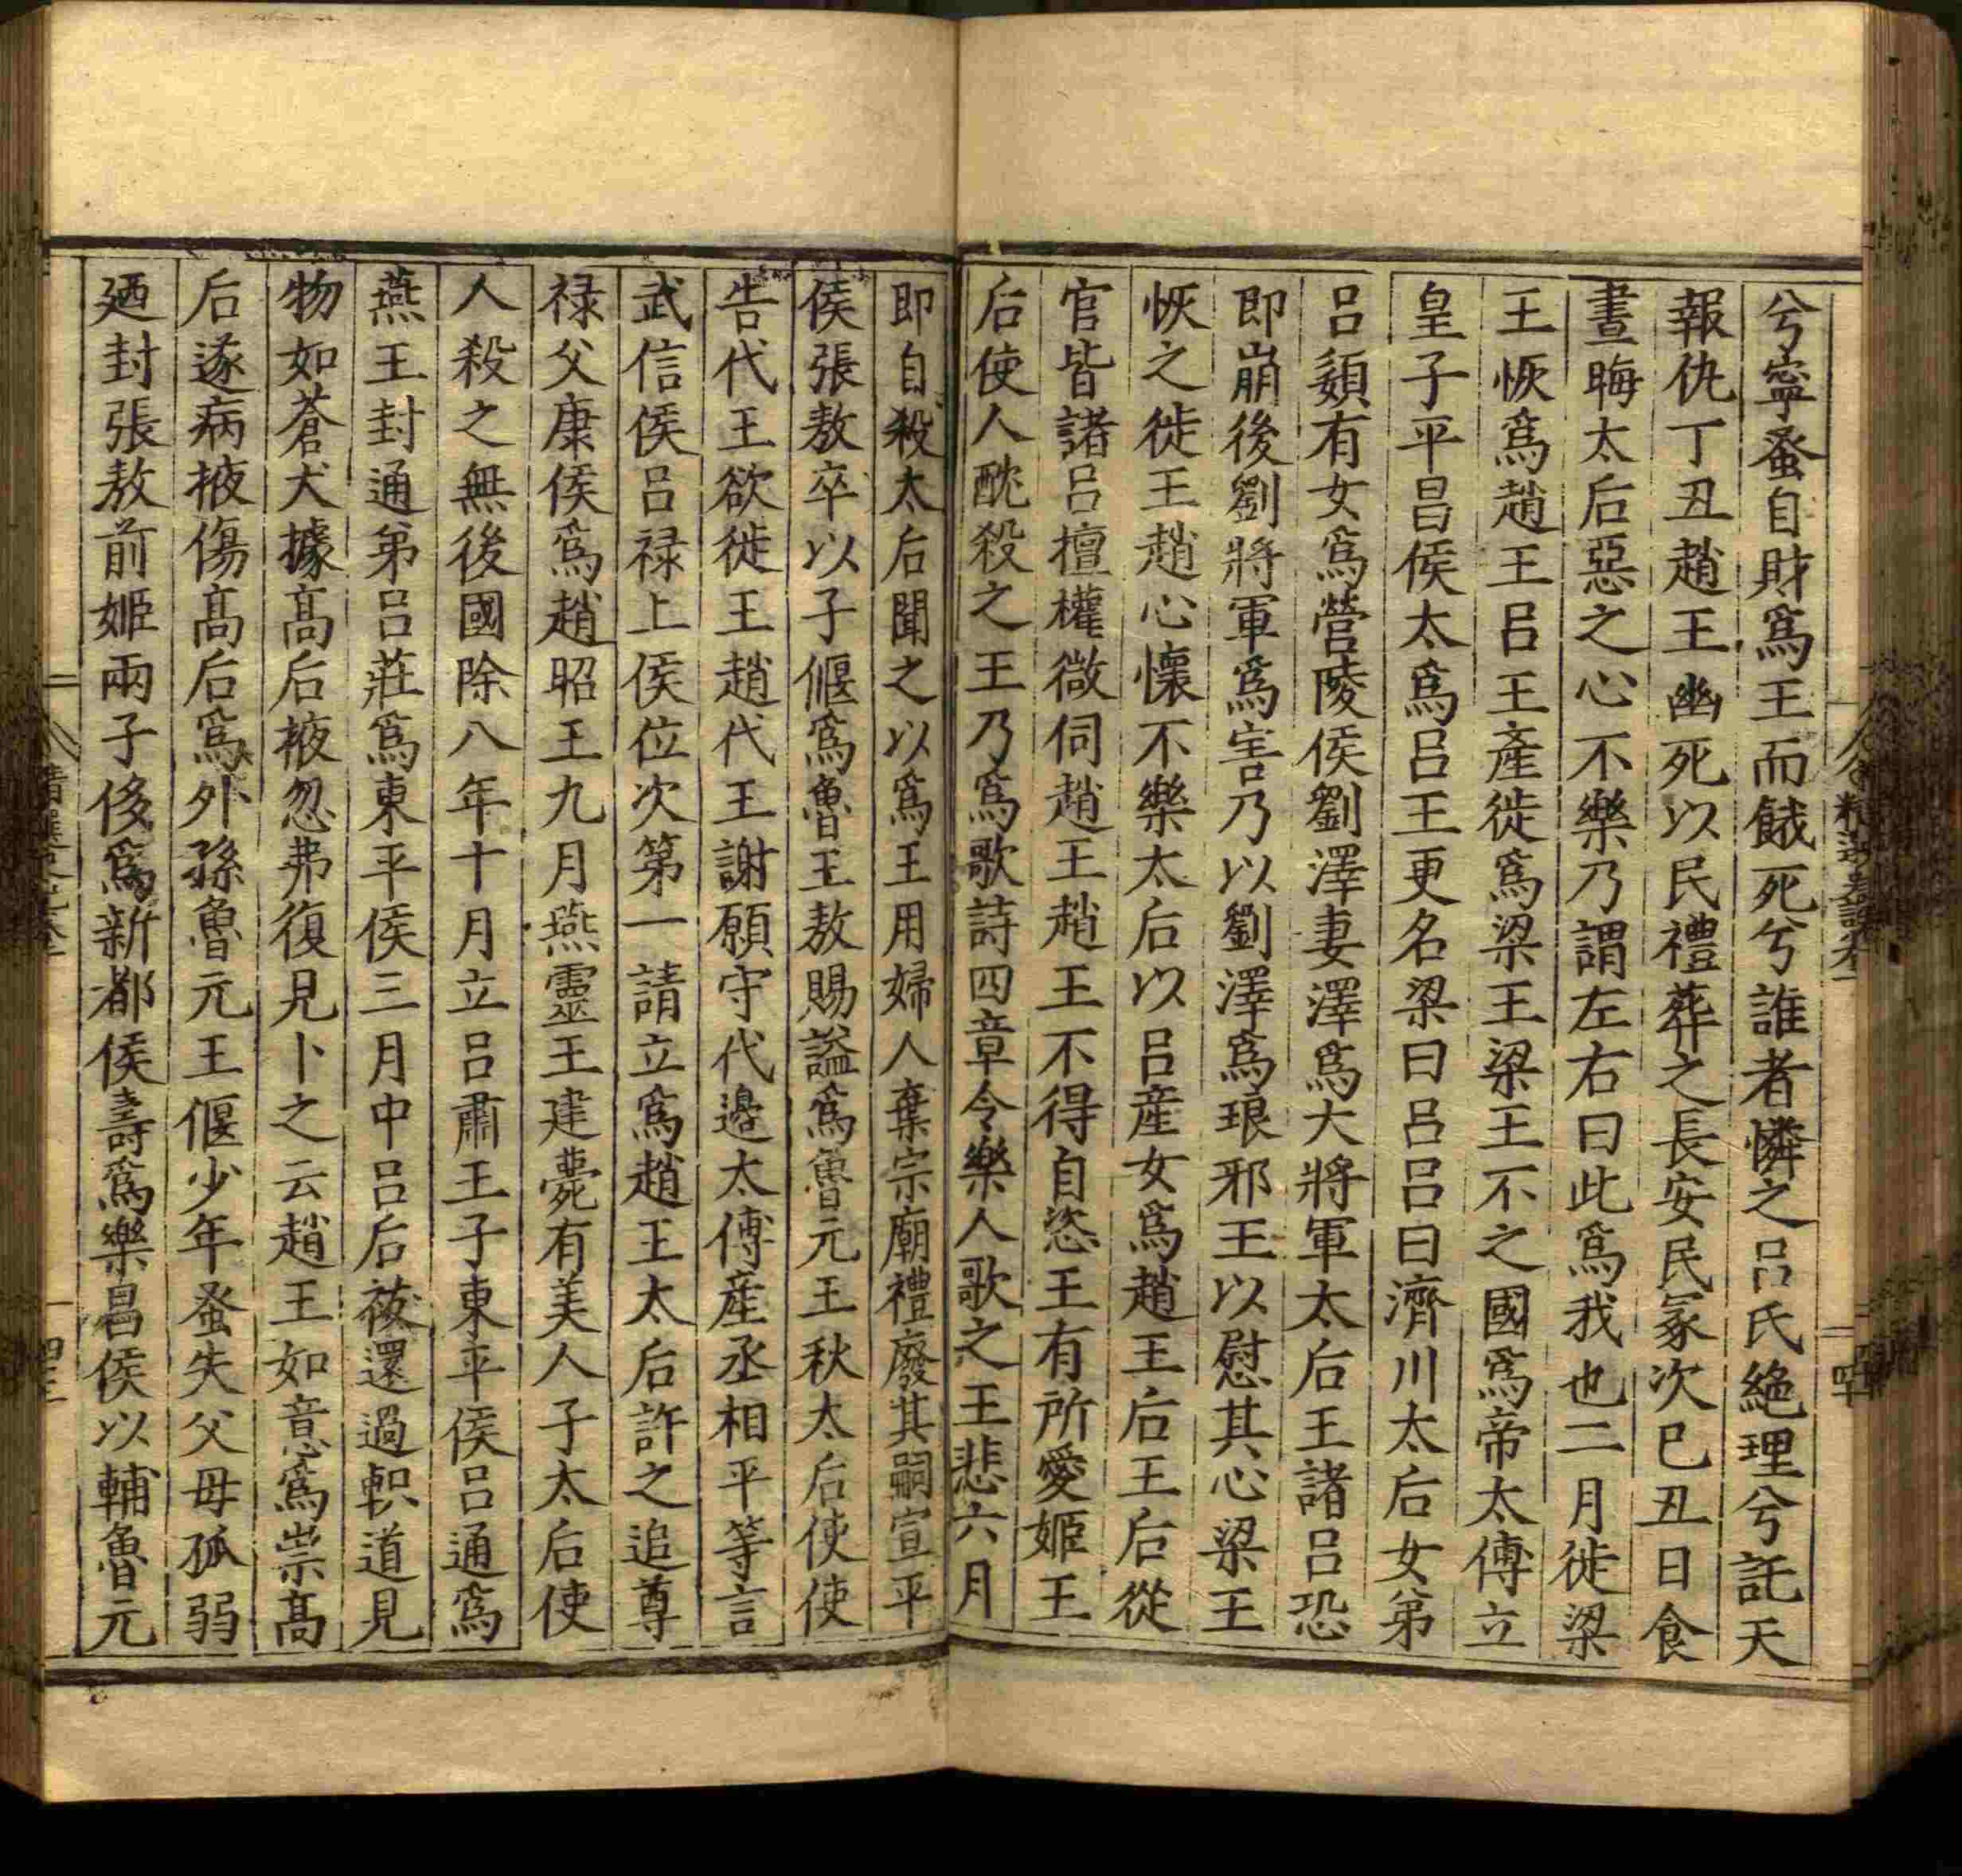 兮寧蚤自財爲王而餓死兮誰者憐之呂氏絶理兮託天
報仇丁丑趙王幽死以民禮葬之長安民冢次巳丑日食
晝晦太后惡之心不樂乃謂左右曰此爲我也二月徙梁
王恢爲趙王呂王產徙爲梁王梁王不之國爲帝太傅立
皇子平昌侯太爲呂王更名梁曰呂呂曰濟川太后女弟
呂嬃有女爲營陵侯劉澤妻澤爲大將軍太后王諸呂恐
即崩後劉將軍爲害乃以劉澤爲琅邪王以慰其心梁王
恢之徙王趙心懷不樂太后以呂産女爲趙王后王后從
官皆諸呂擅權微伺趙王趙王不得自恣王有所愛姬王
后使人酖殺之王乃爲歌詩四章令樂人歌之王悲六月
即自殺太后聞之以爲王用婦人棄宗廟禮廢其嗣宣平
侯張敖卒以子偃爲魯王敖賜謚爲魯元王秋太后使使
告代王欲徙王趙代王謝願守代邊太傅産丞相平等言
武信侯呂禄上侯位次第一請立爲趙王太后許之追尊
禄父康侯爲趙昭王九月燕靈王建薨有美人子太后使
人殺之無後國除八年十月立呂肅王子東平侯呂通爲
燕王封通弟呂莊爲東平侯三月中呂后祓還過軹道見
物如蒼犬據高后掖忽弗復見卜之云趙王如意爲祟高
后遂病掖傷高后爲外孫魯元王偃少年蚤失父母孤弱
廼封張敖前姬兩子侈爲新都侯壽爲樂昌侯以輔魯元